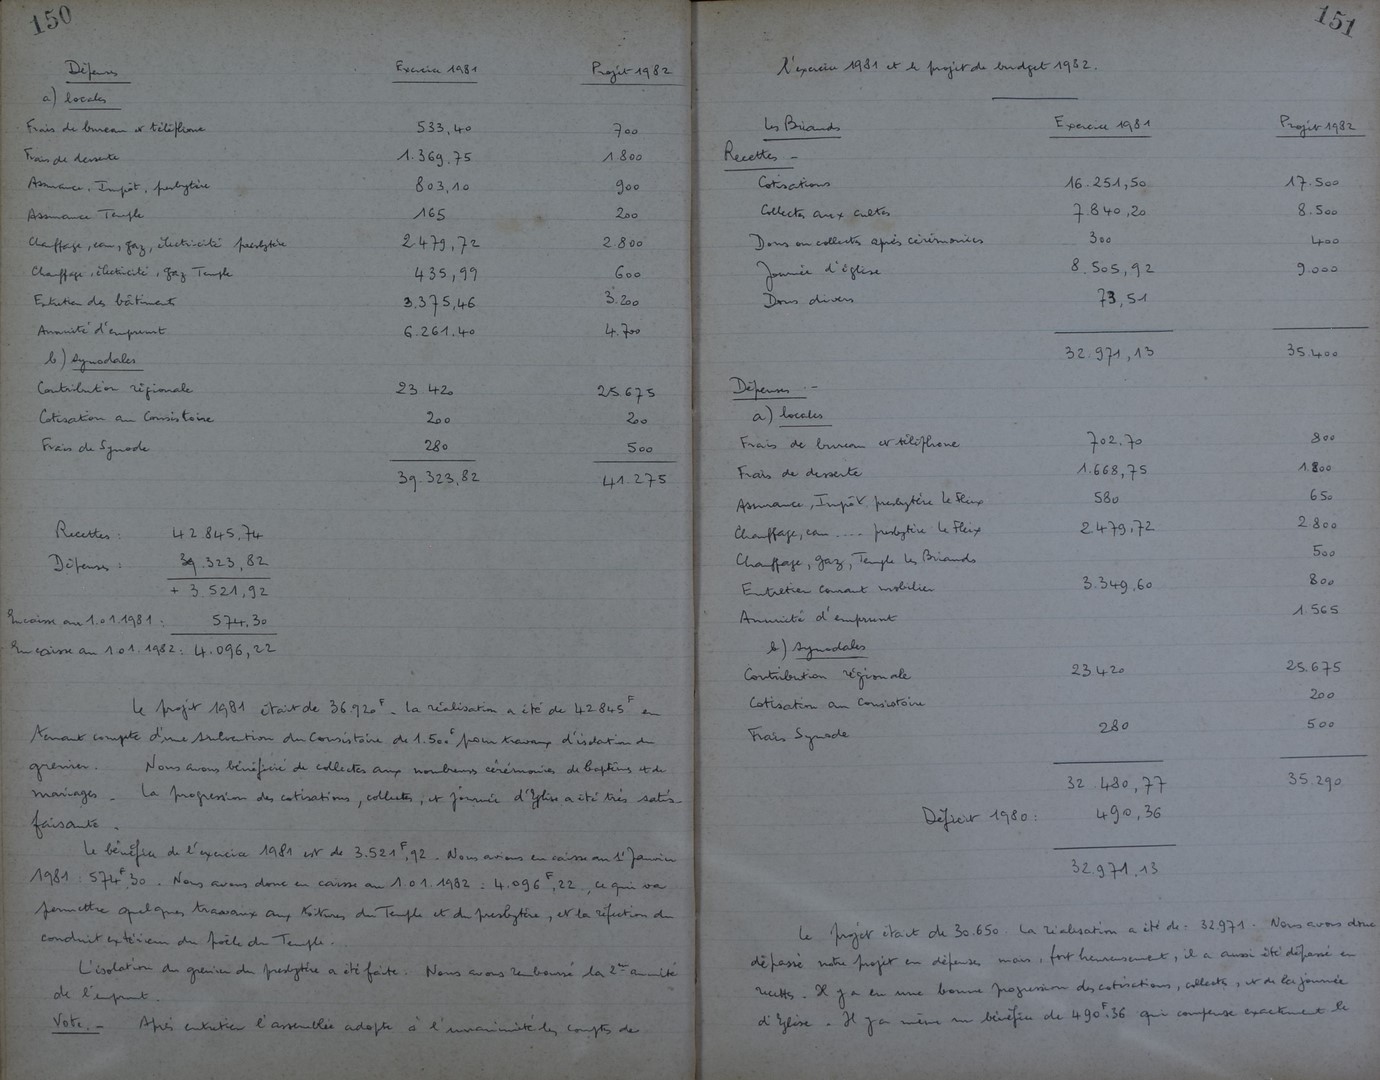 150
Dépenses Exercice 1981 Projet 1982
a) locales
Frais de bureau et téléphone 533,40 700
Frais de desserte 1.369,75 1 800
Assurance, Impôt, presbytère 803,10 900
Assurance Temple 165 200
Chauffage, eau, gaz, électricité presbytère 2.479,72 2.800
Chauffage, électricité, gaz Temple 435,99 600
Entretien des bâtiments 3.375,46 3.200
Annuité d'emprunt 6.261.40 4.700
b) Synodales
Contribution régionale 23.420 25.675
Cotisation au Consistoire 200 200
Frais de Synode 280 500
39.323,82 41.275
Recettes : 42.845,74
Dépenses : 39.323,82
+ 3.521,92
En caisse au 1.01.1981 : 574,30
En caisse au 1.01.1982 : 4.096,22
Le projet 1981 était de 36 920F. La réalisation a été de 42845F en
tenant compte d'une subvention du Consistoire de 1.500F pour travaux d'isolation du
grenier. Nous avons bénéficié de collectes aux nombreuses cérémonies de baptêmes et de
mariages. La progression des cotisations, collectes, et journée d'Eglise a été très satis-
faisante.
Le bénéfice de l'exercice 1981 est de 3.521F,92. Nous avions en caisse au 1er Janvier
1981 : 574F,30. Nous avons donc en caisse au 1.01.1982 : 4.096F,22, ce qui va
permettre quelques travaux aux toitures du Temple et du presbytère, et la réfection du
conduit extérieur du poêle du Temple.
L'isolation du grenier du presbytère a été faite. Nous avons remboursé la 2e annuité
de l'emprunt.
Vote. - Après entretien l'assemblée adopte à l'unanimité les comptes de
151
l'exercice 1981 et le projet de budget 1982.
Les Briands Exercice 1981 Projet 1982
Recettes -
Cotisations 16.251,50 17.500
Collectes aux cultes 7.840,20 8.500
Dons ou collectes après cérémonies 300 400
Journée d'église 8.505,92 9.000
Dons divers 73,51
32.971,13 35.400
Dépenses -
a) locales
Frais de bureau et téléphone 702,70 800
Frais de desserte 1.668,75 1.800
Assurance, Impôt presbytère Le Fleix 580 650
Chauffage, eau .... presbytère Le Fleix 2479,72 2800
Chauffage, gaz, Temple les Briands 500
Entretien courant mobilier 3.349,60 800
Annuité d'emprunt 1565
b) Synodales
Contribution régionale 23.420 25.675
Cotisation au Consistoire 200
Frais Synode 280 500
32.480,77 35.290
Déficit 1980 : 490,36
32.971,13
Le projet était de 30.650. La réalisation a été de : 32971. Nous avons donc
dépassé notre projet en dépenses mais, fort heureusement, il a aussi été dépassé en
recettes. Il y a eu une bonne progression des cotisations, collectes, et de la journée
d'Eglise. Il y a même un bénéfice de 490F,36 qui compense exactement le